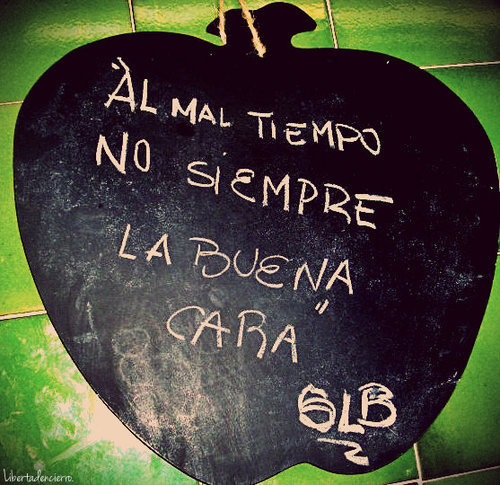 "AL MAL TIEMPO
NO SIEMPRE
LA BUENA
CARA"
SLB
Libertadencierro.